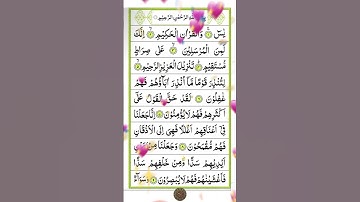 بِسْمِ اللهِ الرَّحْمٰنِ الرَّحِيْمِ
يٰسٓ ۚ وَالْقُرْاٰنِ الْحَكِيْمِ ۙ اِنَّكَ
لَمِنَ الْمُرْسَلِيْنَ ۙ عَلٰى صِرَاطٍ
مُّسْتَقِيْمٍ ؕ تَنْزِيْلَ الْعَزِيْزِ الرَّحِيْمِ ۙ
لِتُنْذِرَ قَوْمًا مَّاۤ اُنْذِرَ اٰبَآؤُهُمْ فَهُمْ
غٰفِلُوْنَ لَقَدْ حَقَّ الْقَوْلُ عَلٰٓى
اَكْثَرِهِمْ فَهُمْ لَا يُؤْمِنُوْنَ اِنَّا جَعَلْنَا
فِيْۤ اَعْنَاقِهِمْ اَغْلٰلًا فَهِيَ اِلَى الْاَذْقَانِ
فَهُمْ مُّقْمَحُوْنَ وَجَعَلْنَا مِنْۢ بَيْنِ
اَيْدِيْهِمْ سَدًّا وَّمِنْ خَلْفِهِمْ سَدًّا
فَاَغْشَيْنٰهُمْ فَهُمْ لَا يُبْصِرُوْنَ وَسَوَآءٌ